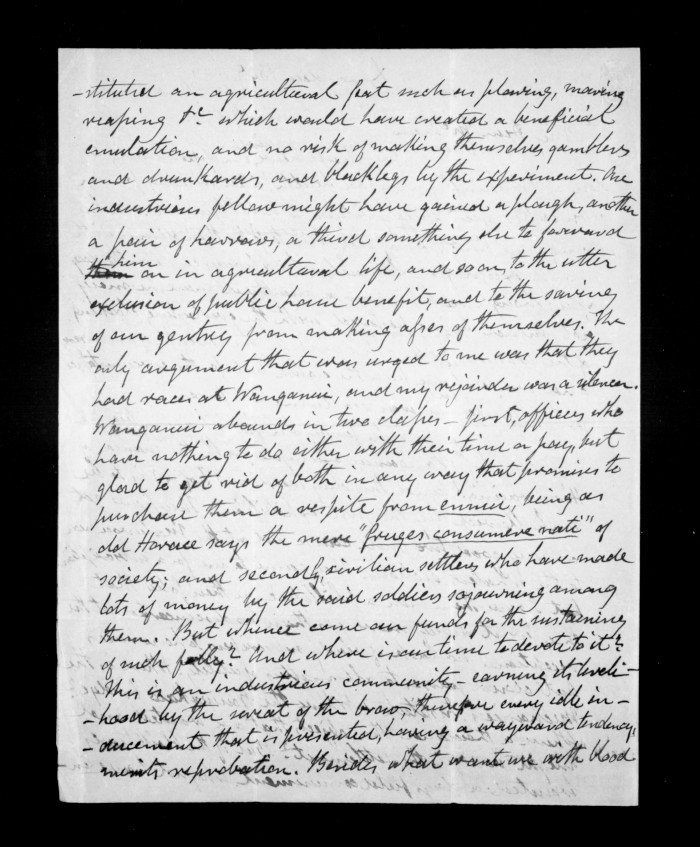 -stituted an agricultural feat such as plowing, mowing
reaping &c which would have created a beneficial
emulation, and no risk of making themselves gamblers
and drunkards, and blacklegs by the experiment. One
industrious fellow might have gained a plough, another
a pair of harrows, a third something else to forward
them him on in agricultural life, and so on, to the utter
exclusion of public house benefit, and to the saving
of our gentry from making asses of themselves. The
only argument that was urged to me was that they
had races at Wanganui, and my rejoinder was a silencer.
Wanganui abounds in two classes - first, officers who
have nothing to do either with their time or pay, but
glad to get rid of both in any way that promises to
purchase them a respite from ennui, being as
old Horace says the mere "fruges consumere nati" of
society; and secondly, civilian settlers who have made
lots of money by the said soldiers sojourning among
them. But whence come our funds for the sustaining
of such folly? And where is our time to devote to it?
This is an industrious community - earning its liveli-
-hood by the sweat of the brow, therefore every idle in-
-ducement that is presented, having a wayward tendency,
merits reprobation. Besides what want we with blood